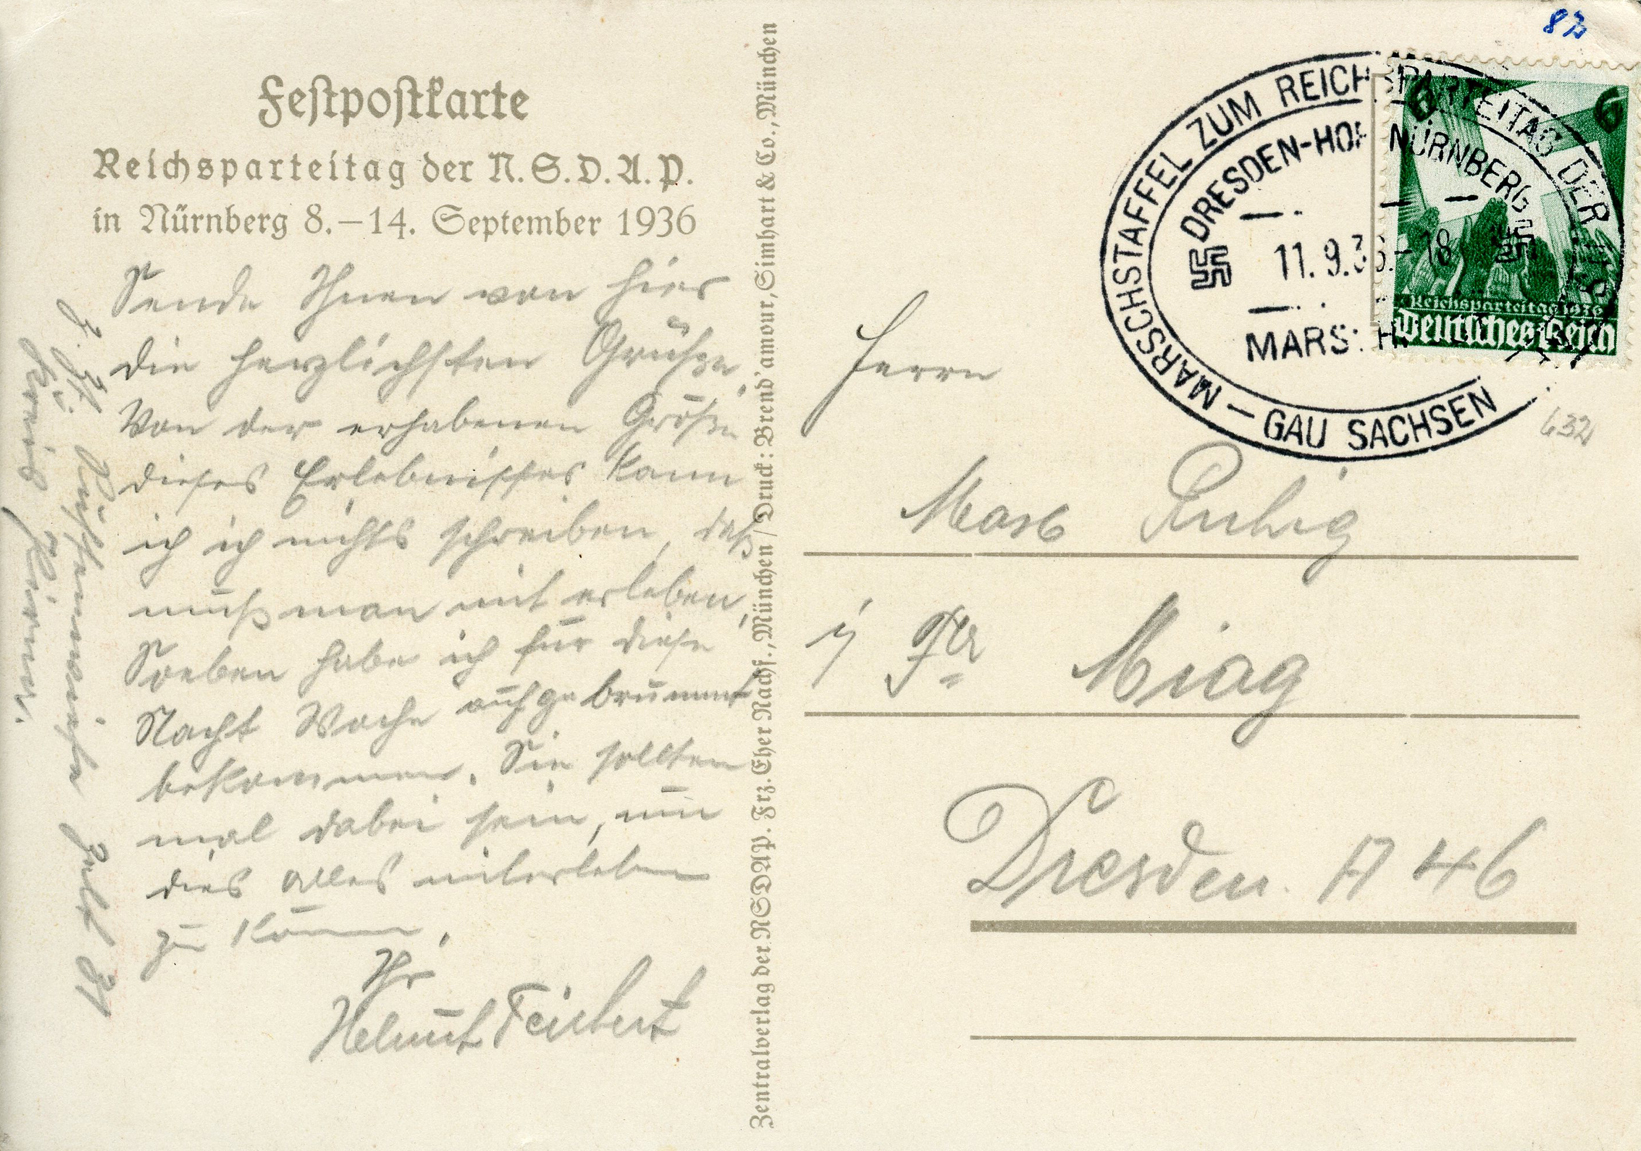 Festpostkarte
Reichsparteitag der N.S.D.A.P.
in Nürnberg 8.–14. September 1936
Sende Ihnen von hier
die herzlichsten Grüße.
Von der erhabenen Größe
dieses Erlebnisses kann
ich ich nichts schreiben, daß
muß man mit erleben,
Soeben habe ich für diese
Nacht Wache aufgebrummt
bekommen. Sie sollten
mal dabei sein, um
dies alles miterleben
zu können.
Ihr
Helmut
z. Zt. Zelt 31
Kreis Pirna.
Zentralverlag der NSDAP. Frz. Eher Nachf., München / Druck: Brend'amour, Simhart & Co., München
83
MARSCHSTAFFEL ZUM REICHSPARTEITAG DER
DRESDEN-HOF NÜRNBERG
11.9.36.-18
MARSCH
MARSCH – GAU SACHSEN
6 6
Reichsparteitag 1936
Deutsches Reich
632
Herrn
Max
i/ Fa Miag
Dresden A 46